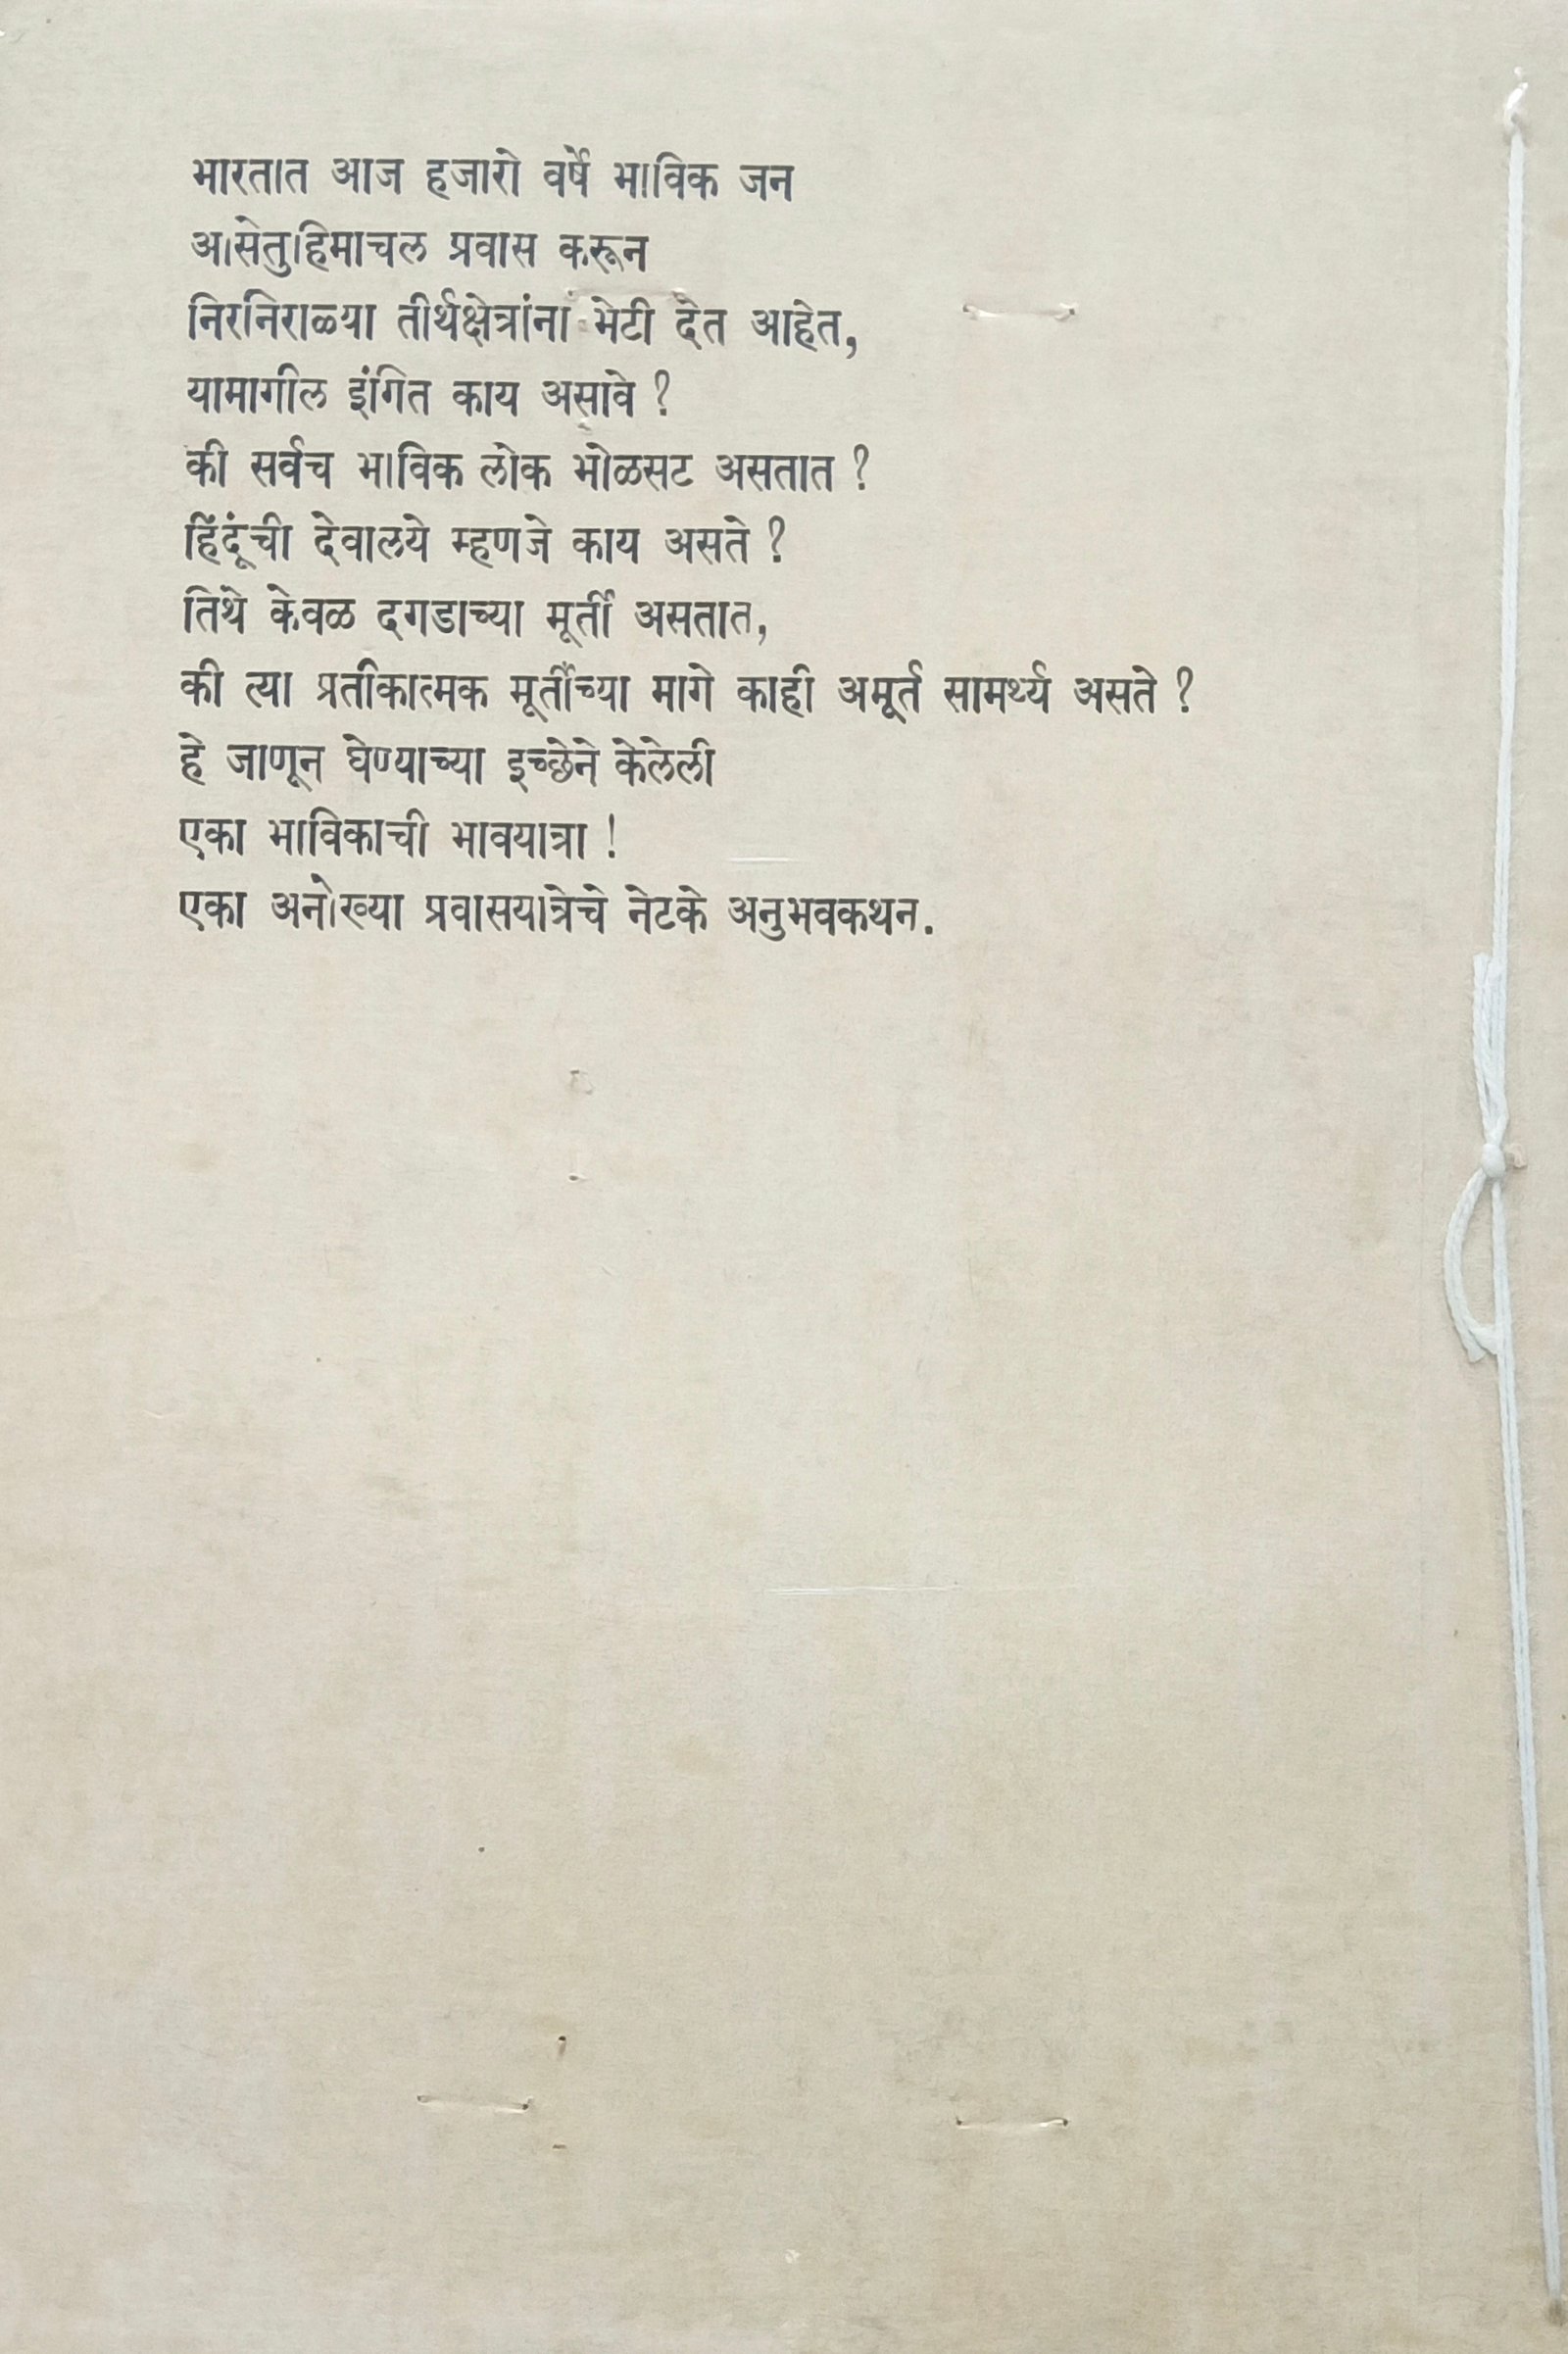 भारतात आज हजारो वर्षे भाविक जन
आसेतुहिमाचल प्रवास करून
निरनिराळ्या तीर्थक्षेत्रांना भेटी देत आहेत,
यामागील इंगित काय असावे ?
की सर्वच भाविक लोक भोळसट असतात ?
हिंदूंची देवालये म्हणजे काय असते ?
तिथे केवळ दगडाच्या मूर्ती असतात,
की त्या प्रतीकात्मक मूर्तींच्या मागे काही अमूर्त सामर्थ्य असते ?
हे जाणून घेण्याच्या इच्छेने केलेली
एका भाविकाची भावयात्रा !
एका अनोख्या प्रवासयात्रेचे नेटके अनुभवकथन.